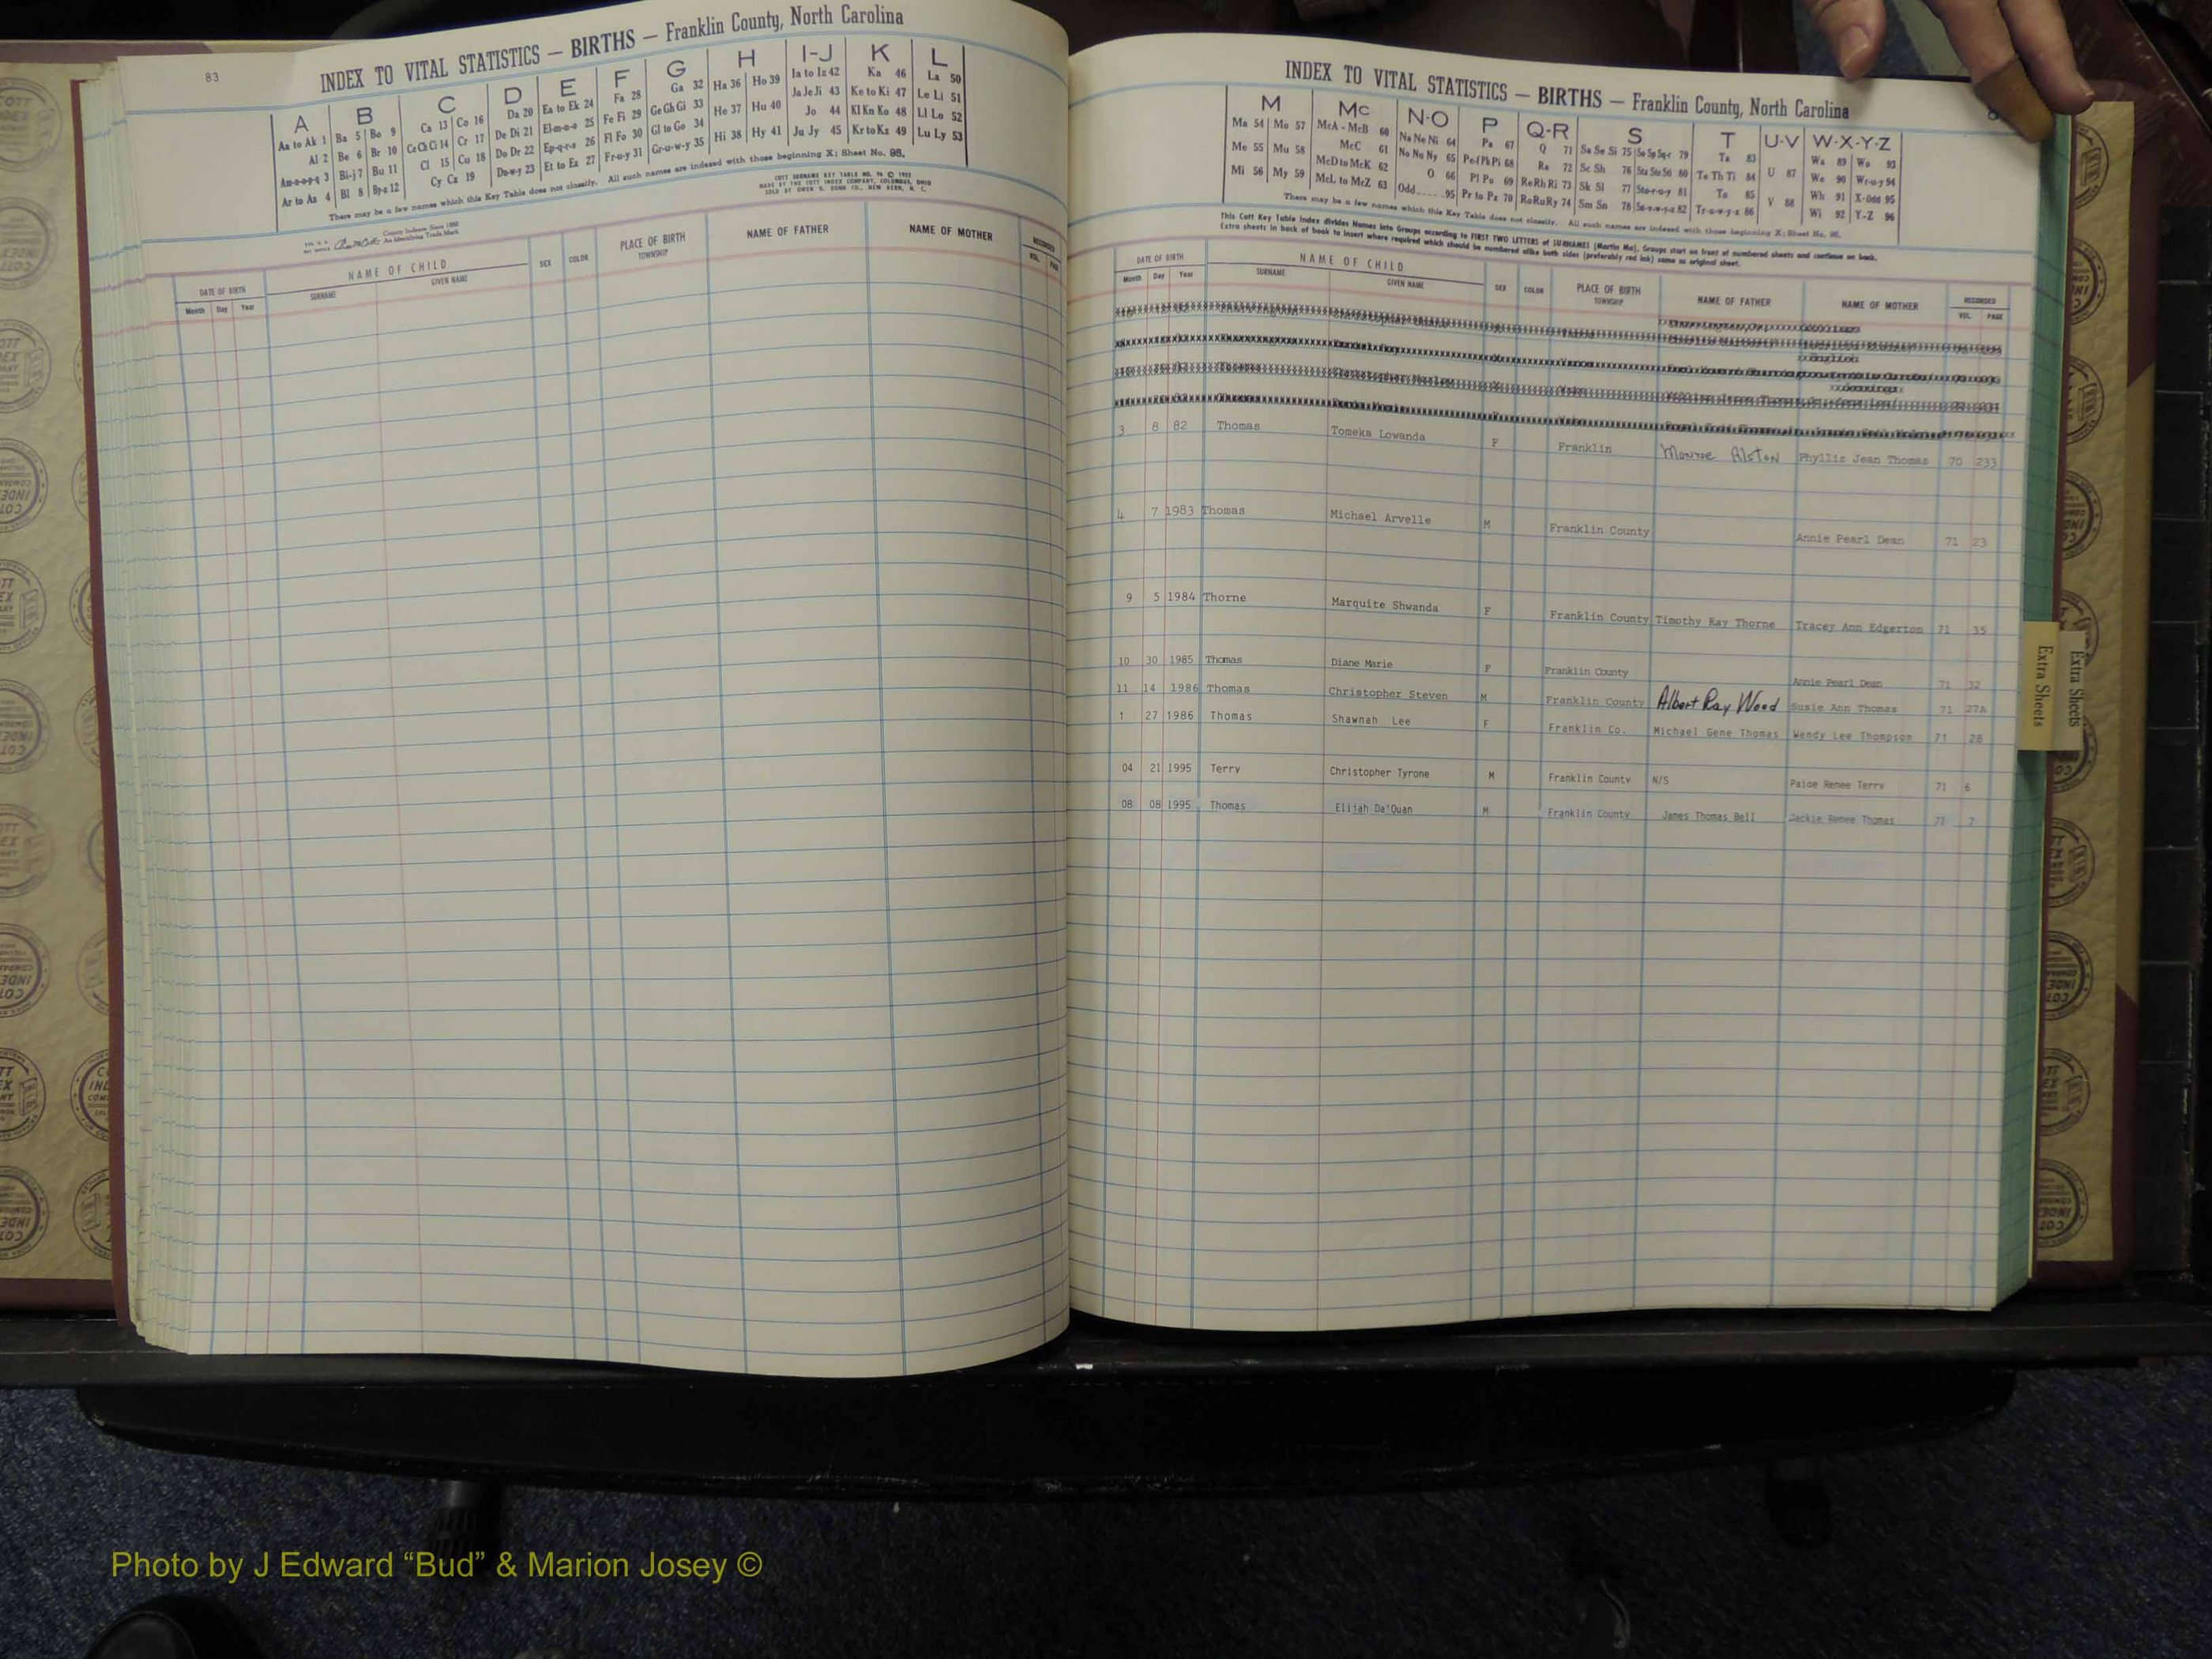 83
INDEX TO VITAL STATISTICS — BIRTHS — Franklin County, North Carolina
A B C D E F G H I-J K L
Aa to Ak 1 Ba 5 Bo 9 Ca 13 Co 16 Da 20 Ea to Ek 24 Fa 28 Ga 32 Ha 36 Ho 39 Ia to Iz 42 Ka 46 La 50
Al 2 Be 6 Br 10 Ce Ch Ci 14 Cr 17 De Di 21 El-m-n-o 25 Fe Fi 29 Ge Gh Gi 33 He 37 Hu 40 Ja Je Ji 43 Ke to Ki 47 Le Li 51
Am-n-o-p-q 3 Bi-j 7 Bu 11 Cl 15 Cu 18 Do Dr 22 Ep-q-r-s 26 Fl Fo 30 Gl to Go 34 Hi 38 Hy 41 Jo 44 Kl Kn Ko 48 Ll Lo 52
Ar to Az 4 Bl 8 By-z 12 Cy Cz 19 Du-w-y 23 Et to Ez 27 Fr-u-y 31 Gr-u-w-y 35 Ju Jy 45 Kr to Kz 49 Lu Ly 53
There may be a few names which this Key Table does not classify. All such names are indexed with those beginning X; Sheet No. 95.
COTT SURNAME KEY TABLE NO. 96 © 1952
MADE BY THE COTT INDEX COMPANY, COLUMBUS, OHIO
SOLD BY OWEN G. DUNN CO., NEW BERN, N. C.
County Indexes Since 1888
An Identifying Trade Mark
DATE OF BIRTH NAME OF CHILD SEX COLOR PLACE OF BIRTH NAME OF FATHER NAME OF MOTHER RECORDED
Month Day Year SURNAME GIVEN NAME TOWNSHIP VOL. PAGE
INDEX TO VITAL STATISTICS — BIRTHS — Franklin County, North Carolina
M Mc N-O P Q-R S T U-V W-X-Y-Z
Ma 54 Mo 57 McA - McB 60 Na Ne Ni 64 Pa 67 Q 71 Sa Se Si 75 So Sp Sq-r 79 Ta 83 U 87 Wa 89 Wo 93
Me 55 Mu 58 McC 61 No Nu Ny 65 Pe-f Ph Pi 68 Ra 72 Sc Sh 76 Sta Ste S6 80 Te Th Ti 84 V 88 We 90 Wr-u-y 94
Mi 56 My 59 McD to McK 62 O 66 Pl Po 69 Re Rh Ri 73 Sk Sl 77 Sto-r-u-y 81 To 85 Wh 91 X-Odd 95
McL to McZ 63 Odd 95 Pr to Pz 70 Ro Ru Ry 74 Sm Sn 78 Su-v-w-y-z 82 Tr-u-w-y-z 86 Wi 92 Y-Z 96
There may be a few names which this Key Table does not classify. All such names are indexed with those beginning X; Sheet No. 95.
This Cott Key Table Index divides Names into Groups according to FIRST TWO LETTERS of SURNAMES (Martin Ma), Groups start on front of numbered sheets and continue on back.
Extra sheets in back of book to insert where required which should be numbered alike both sides (preferably red ink) same as original sheet.
DATE OF BIRTH NAME OF CHILD SEX COLOR PLACE OF BIRTH NAME OF FATHER NAME OF MOTHER RECORDED
Month Day Year SURNAME GIVEN NAME TOWNSHIP VOL. PAGE
3 8 82 Thomas Tomeka Lowanda F Franklin Monroe Alston Phyllis Jean Thomas 70 233
4 7 1983 Thomas Michael Arvelle M Franklin County Annie Pearl Dean 71 23
9 5 1984 Thorne Marquite Shwanda F Franklin County Timothy Ray Thorne Tracey Ann Edgerton 71 35
10 30 1985 Thomas Diane Marie F Franklin County Annie Pearl Dean 71 32
11 14 1986 Thomas Christopher Steven M Franklin County Albert Ray Wood Susie Ann Thomas 71 27A
1 27 1986 Thomas Shawnah Lee F Franklin Co. Michael Gene Thomas Wendy Lee Thompson 71 28
04 21 1995 Terry Christopher Tyrone M Franklin County N/S Paige Renee Terry 71 6
08 08 1995 Thomas Elijah Da'Quan M Franklin County James Thomas Bell Jackie Renee Thomas 71 7
Extra Sheets
Extra Sheets
Photo by J Edward “Bud” & Marion Josey ©